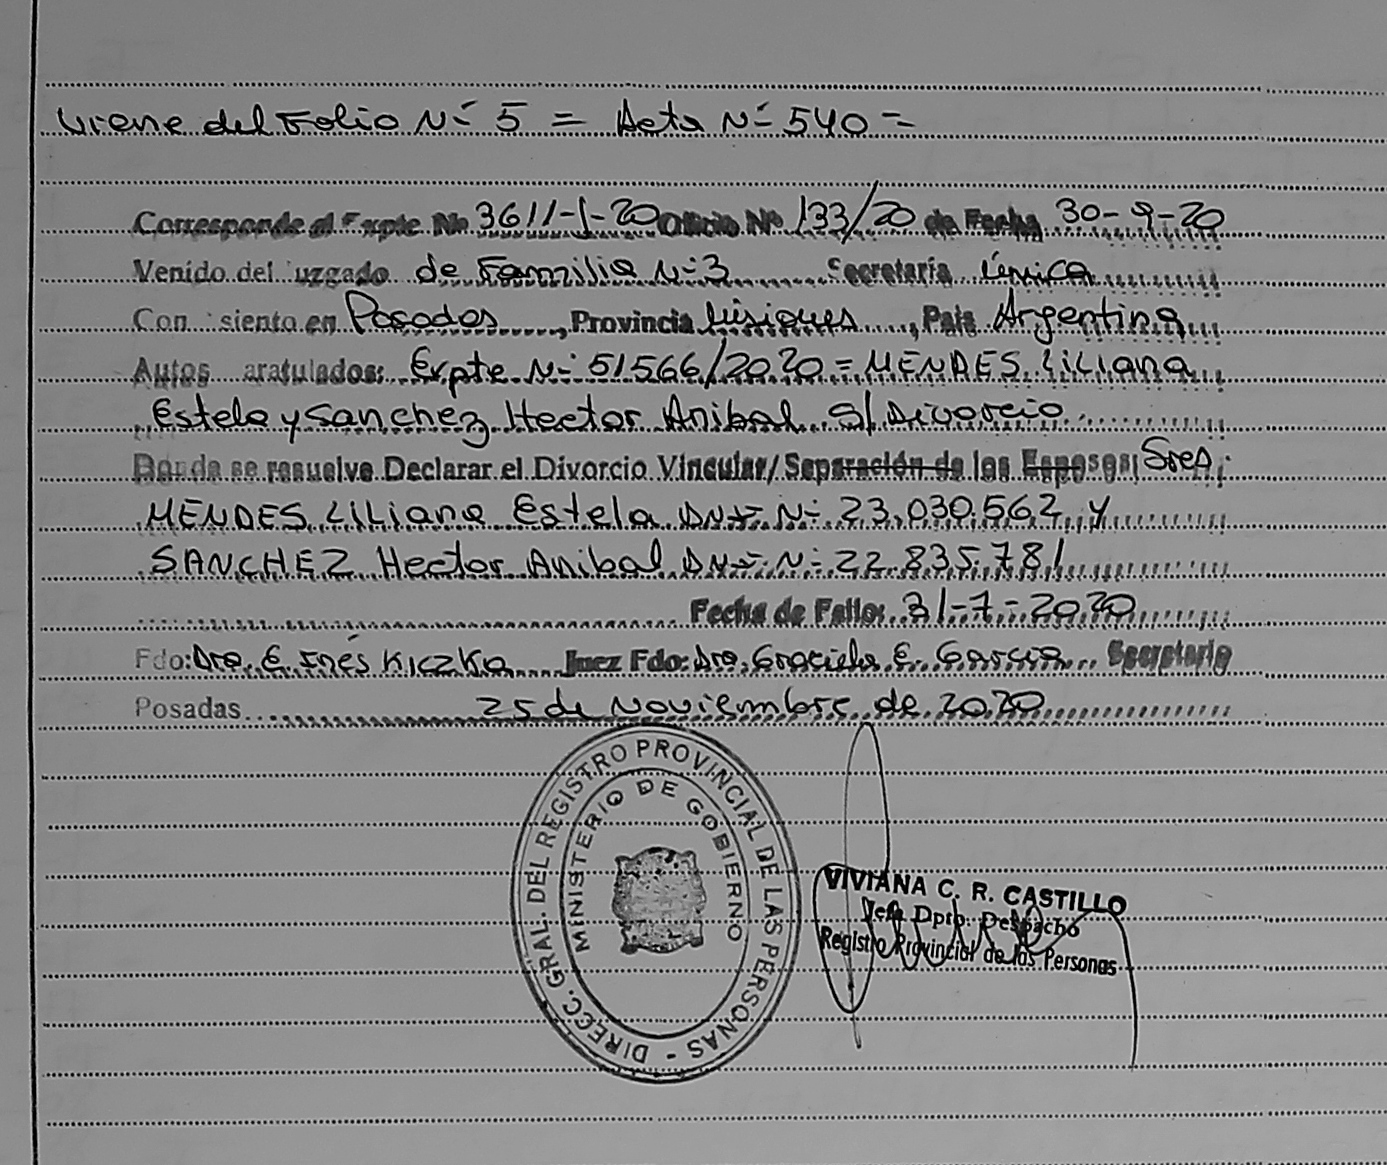 Viene del Folio Nº 5 = Acta Nº 540 =
Corresponde al Expte No 3611-J-20 Oficio Nº 133/20 de Fecha 30-9-20
Venido del uzgado de Familia Nº 3 Secretaría Única
Con siento en Posadas, Provincia Misiones, Pais Argentina
Autos aratulados: Expte Nº 51566/2020 = MENDES Liliana
Estela y Sanchez Hector Anibal S/ Divorcio.
Donde se resuelve Declarar el Divorcio Vincular/ Separación de los Esposos; Sres.
MENDES Liliana Estela DNI Nº 23.030.562 y
SANCHEZ Hector Anibal DNI Nº 22.835.781
Fecha de Fallo: 31-7-2020
Fdo: Dra. E. Inés Kiczka Juez Fdo: Dra. Graciela E. Garcia Secretario
Posadas 25 de Noviembre de 2020
DIRECC. GRAL. DEL REGISTRO PROVINCIAL DE LAS PERSONAS -
MINISTERIO DE GOBIERNO
VIVIANA C. R. CASTILLO
Jefa Dpto. Despacho
Registro Provincial de las Personas